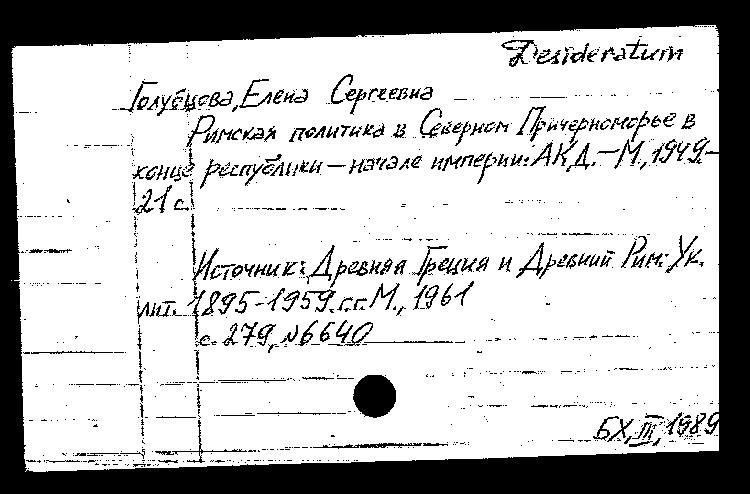 Desideratum
Голубцова, Елена Сергеевна
Римская политика в Северном Причерноморье в
конце республики — начале империи: АКД. — М., 1949. —
21 с.
Источник: Древняя Греция и Древний Рим: Ук.
лит. 1895-1959 г.г. М., 1961
с. 279, № 6640
БХ, III, 1989